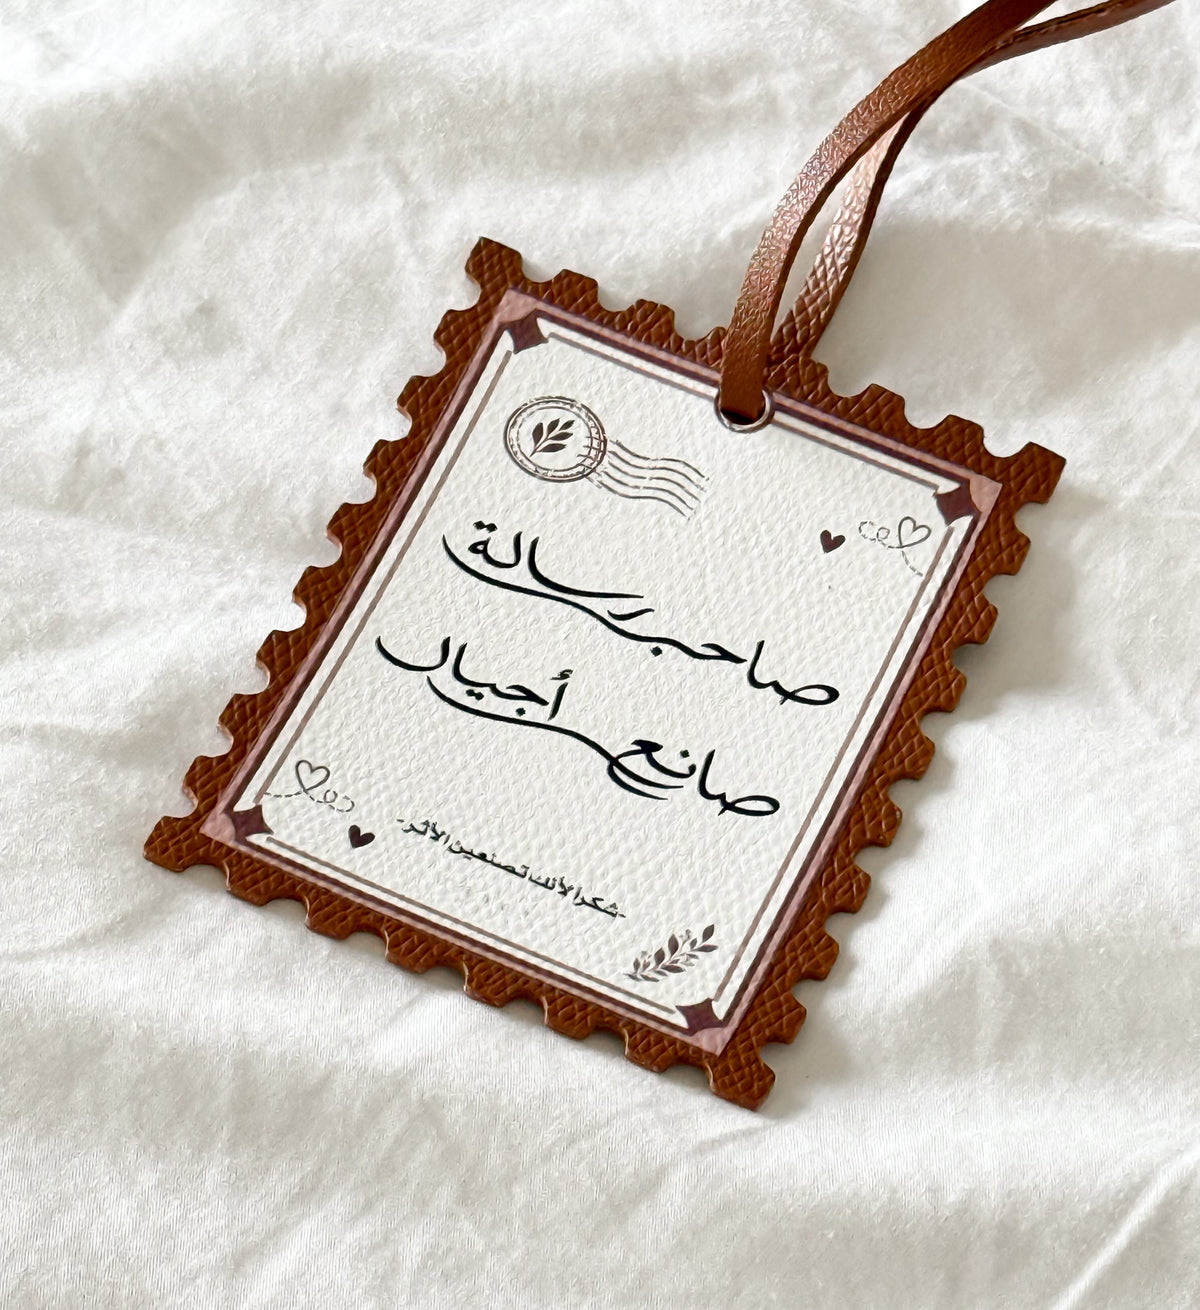 صاحب رسالة
صانع أجيال
-شكرا لأنك تصنعين الأثر-